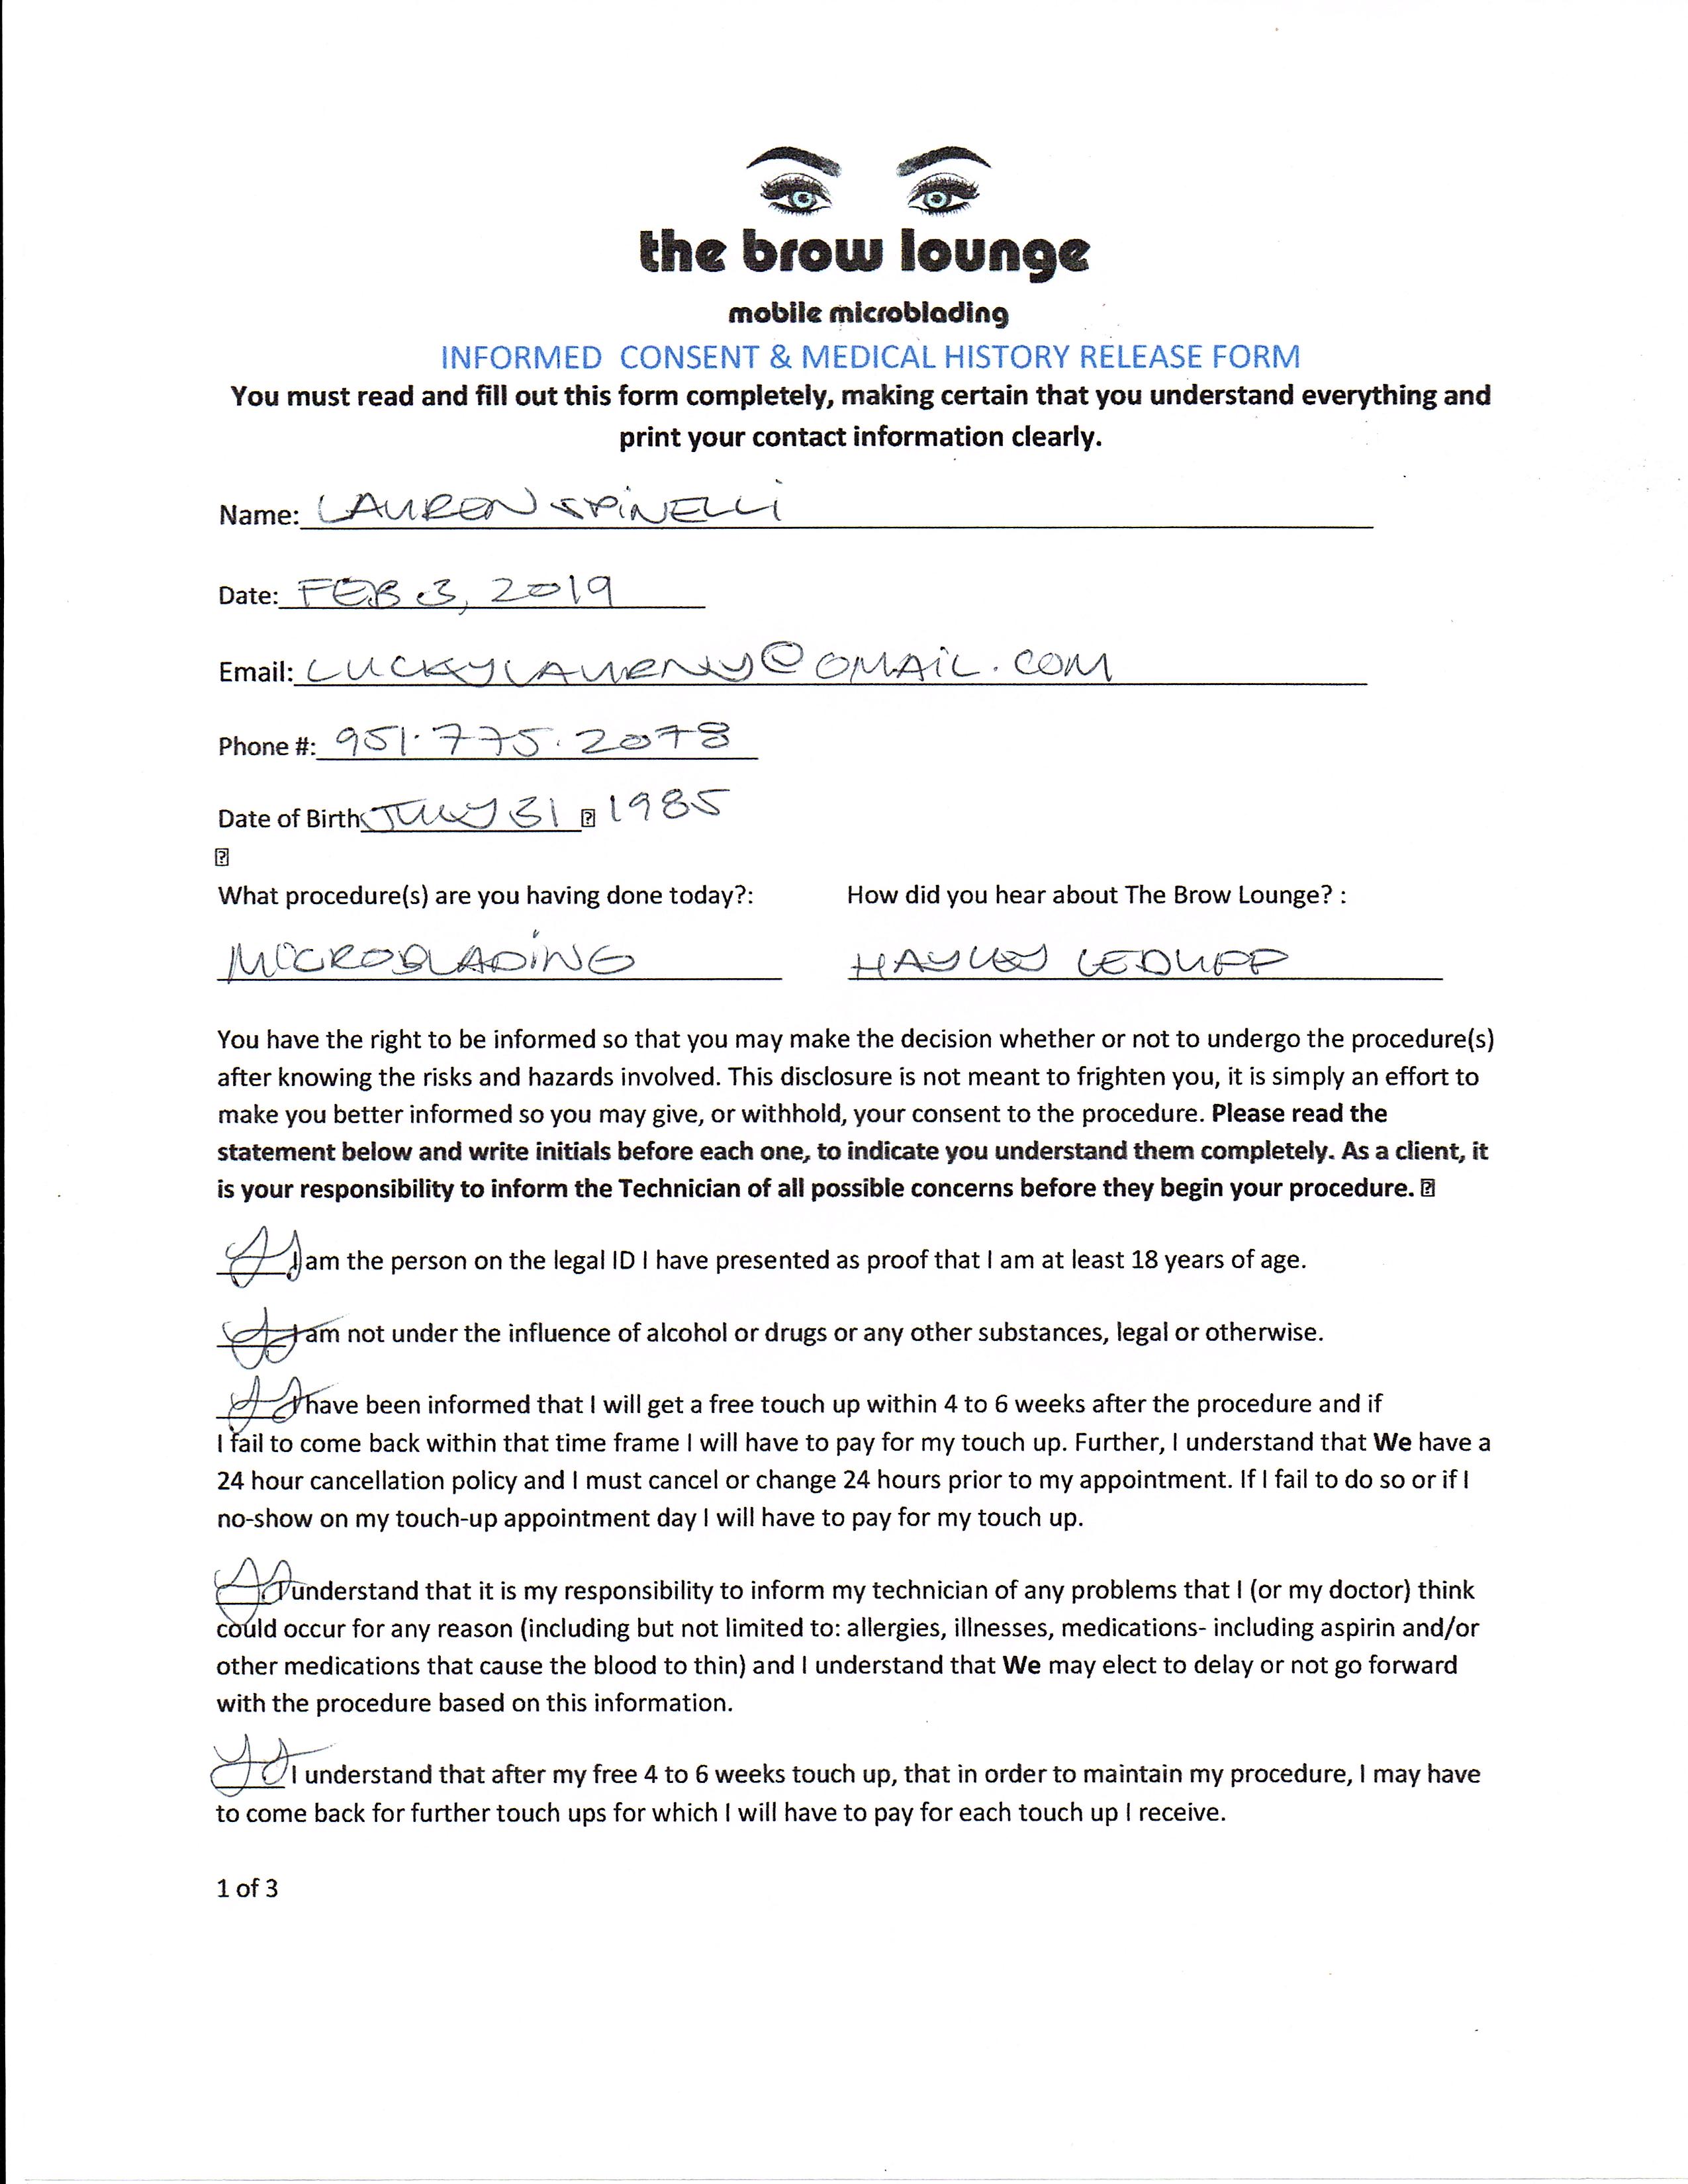 the brow lounge
mobile microblading
INFORMED CONSENT & MEDICAL HISTORY RELEASE FORM
You must read and fill out this form completely, making certain that you understand everything and
print your contact information clearly.
Name: LAUREN SPINELLI
Date: FEB 3, 2019
Email:
Phone #: 951.775.2078
Date of Birth JULY 31 1985
What procedure(s) are you having done today?: How did you hear about The Brow Lounge? :
MICROBLADING HAYLEY LEDUFF
You have the right to be informed so that you may make the decision whether or not to undergo the procedure(s)
after knowing the risks and hazards involved. This disclosure is not meant to frighten you, it is simply an effort to
make you better informed so you may give, or withhold, your consent to the procedure. Please read the
statement below and write initials before each one, to indicate you understand them completely. As a client, it
is your responsibility to inform the Technician of all possible concerns before they begin your procedure.
I am the person on the legal ID I have presented as proof that I am at least 18 years of age.
I am not under the influence of alcohol or drugs or any other substances, legal or otherwise.
I have been informed that I will get a free touch up within 4 to 6 weeks after the procedure and if
I fail to come back within that time frame I will have to pay for my touch up. Further, I understand that We have a
24 hour cancellation policy and I must cancel or change 24 hours prior to my appointment. If I fail to do so or if I
no-show on my touch-up appointment day I will have to pay for my touch up.
I understand that it is my responsibility to inform my technician of any problems that I (or my doctor) think
could occur for any reason (including but not limited to: allergies, illnesses, medications- including aspirin and/or
other medications that cause the blood to thin) and I understand that We may elect to delay or not go forward
with the procedure based on this information.
I understand that after my free 4 to 6 weeks touch up, that in order to maintain my procedure, I may have
to come back for further touch ups for which I will have to pay for each touch up I receive.
1 of 3